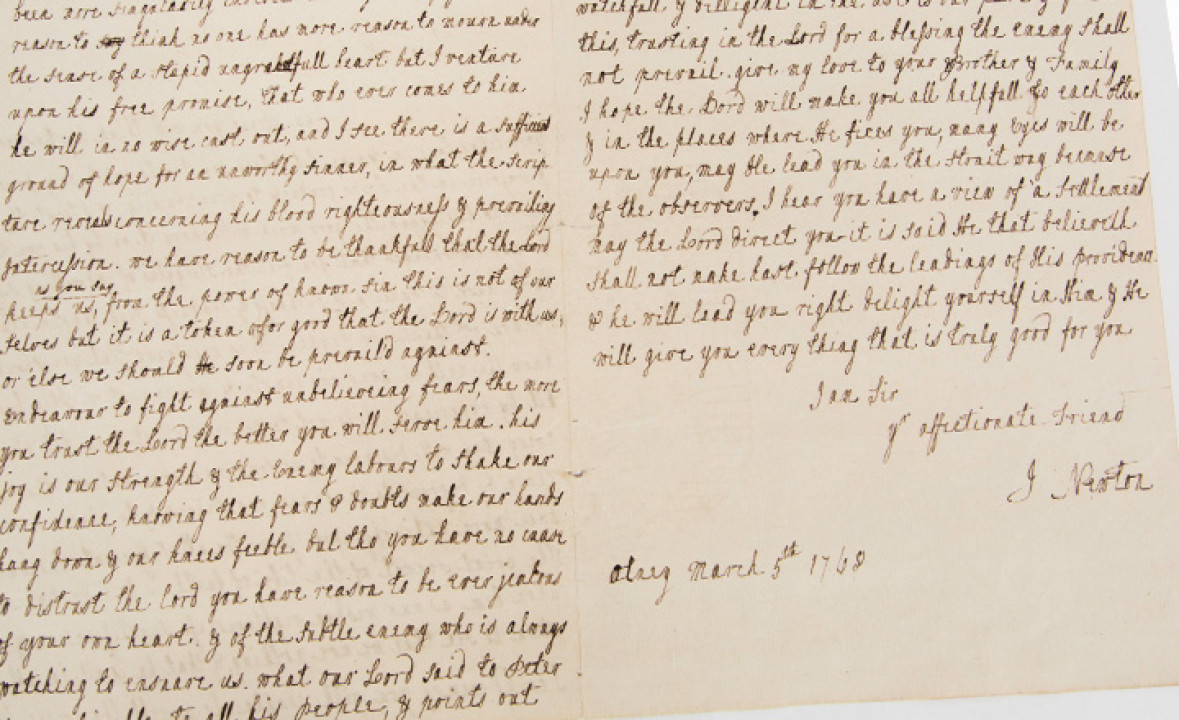 been more singularly
reason to say think no one has more reason to mourn under
the sense of a stupid ungratefull heart but I venture
upon his free promise, that who ever comes to him
he will in no wise cast out, and I see there is a sufficient
ground of hope for an unworthy sinner, in what the scrip
ture reveals concerning his blood righteousness & prevailing
Intercession. we have reason to be thankfull that the Lord
as you say
keeps us, from the power of known sin this is not of our
selves but it is a token for good that the Lord is with us,
or else we should He soon be prevaild against.
Endeavour to fight against unbelieveing fears, the more
you trust the Lord the better you will serve him. his
joy is our strength & the Enemy labours to shake our
confidence, knowing that fears & doubts make our hands
hang down & our knees feeble. but tho you have no cause
to distrust the lord you have reason to be ever jealous
of your own heart. & of the subtle enemy who is always
watching to ensnare us. what our Lord said to Peter
to all his people, & points out
watchfull & dilligent in the use
this, trusting in the Lord for a blessing the enemy shall
not prevail. give my love to your Brother & Family
I hope the Lord will make you all helpfull to each other
& in the places where He fixes you, many Eyes will be
upon you, may He lead you in the strait way because
of the observers. I hear you have a view of a settlement
may the Lord direct you it is said He that believeth
shall not make hast. follow the leadings of His providence
& he will lead you right delight yourself in Him & He
will give you every thing that is truly good for you
I am Sir
yr affectionate Friend
J Newton
olney March 5th 1768